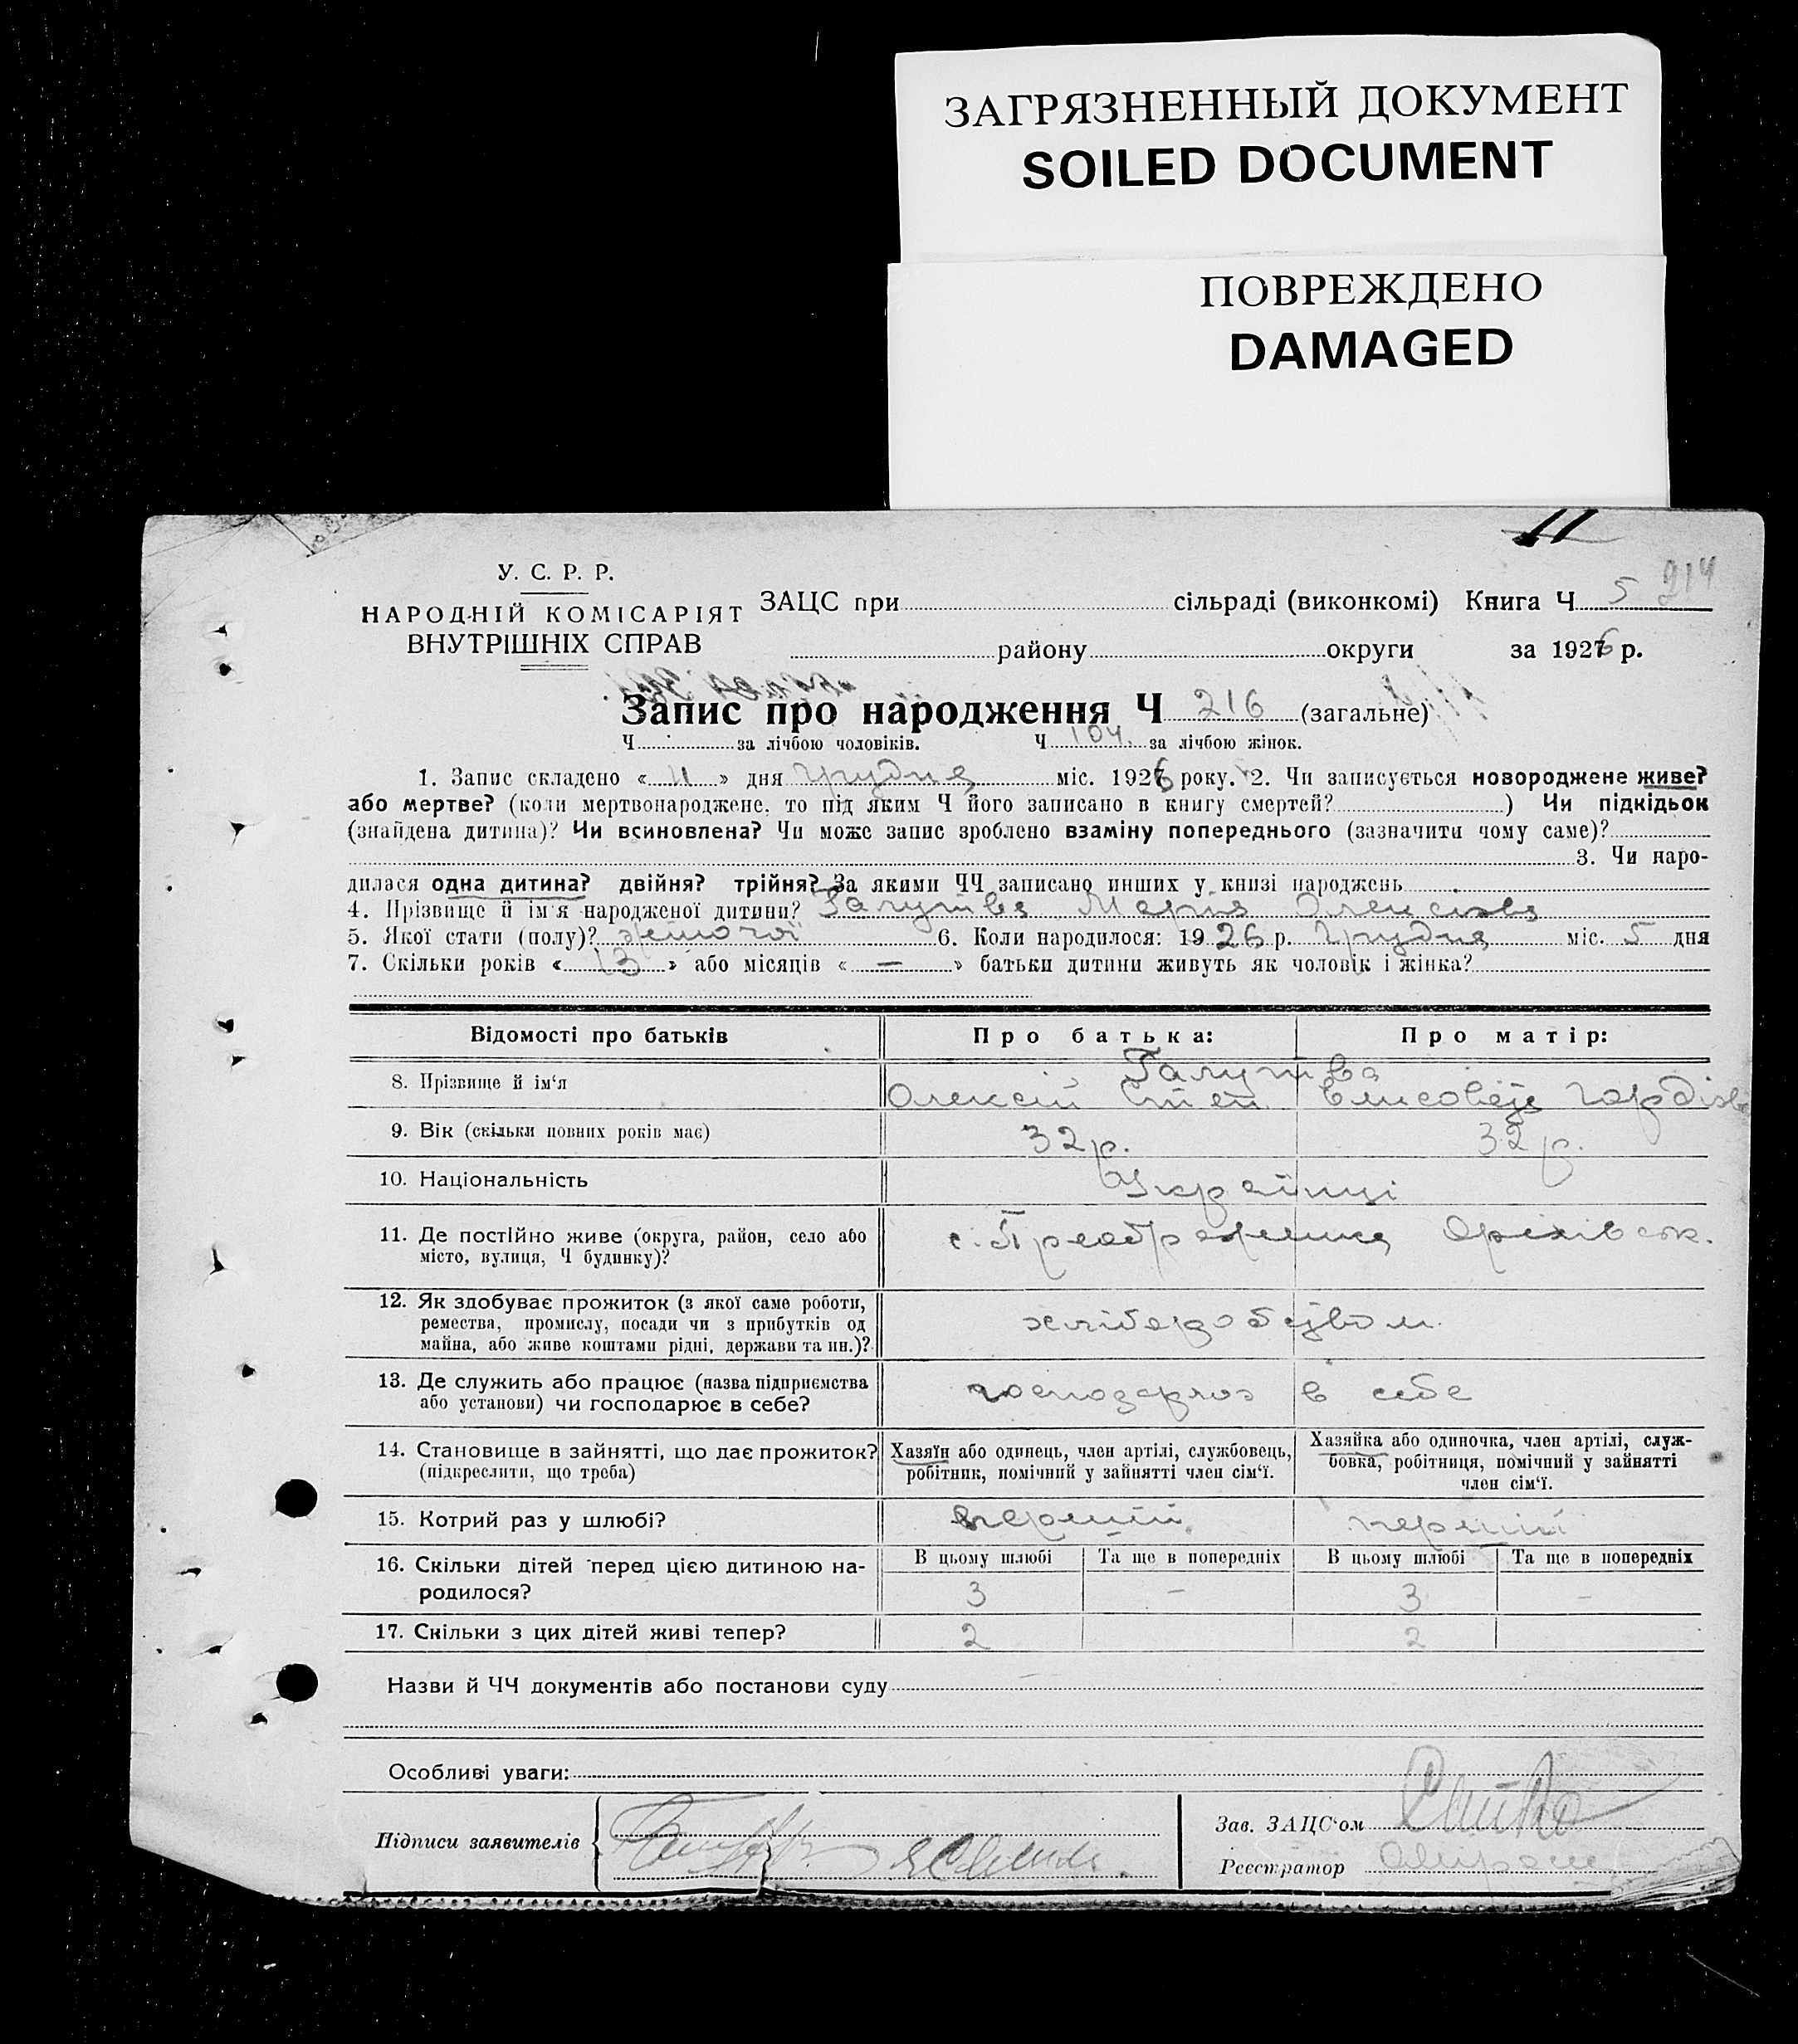 ЗАГРЯЗНЕННЫЙ ДОКУМЕНТ
SOILED DOCUMENT
ПОВРЕЖДЕНО
DAMAGED
11
214
У. С. Р. Р.
НАРОДНІЙ КОМІСАРІЯТ
ВНУТРІШНІХ СПРАВ
ЗАЦС при сільраді (виконкомі) Книга Ч. 5
району округи за 1926 р.
Запис про народження Ч 216 (загальне)
Ч за лічбою чоловіків. Ч 104 за лічбою жінок.
1. Запис складено «11» дня грудня міс. 1926 року. 2. Чи записується новороджене живе?
або мертве? (коли мертвонароджене, то під яким Ч його записано в книгу смертей? ) Чи підкідьок
(знайдена дитина)? Чи всиновлена? Чи може запис зроблено взаміну попереднього (зазначити чому саме)?
3. Чи наро-
дилася одна дитина? двійня? трійня? За якими ЧЧ записано инших у книзі народжень
4. Прізвище й ім'я народженої дитини? Галутва Марія Олексіова
5. Якої стати (полу)? жіночої 6. Коли народилося: 1926 р. Грудня міс. 5 дня
7. Скільки років «13» або місяців «—» батьки дитини живуть як чоловік і жінка?
Відомості про батьків Про батька: Про матір:
8. Прізвище й ім'я Галутва
Олексій Степ. Єлисовета Гордіов
9. Вік (скільки повних років має) 32 р. 32 р.
10. Національність Українці
11. Де постійно живе (округа, район, село або
місто, вулиця, Ч будинку)?
с. Преображенка Оріхівськ.
12. Як здобуває прожиток (з якої саме роботи,
ремества, промислу, посади чи з прибутків од
майна, або живе коштами рідні, держави та ин.)?
хліборобством.
13. Де служить або працює (назва підприємства
або установи) чи господарює в себе?
господарює в себе
14. Становище в зайнятті, що дає прожиток?
(підкреслити, що треба)
Хазяїн або одинець, член артілі, службовець,
робітник, помічний у зайнятті член сім'ї.
Хазяйка або одиночка, член артілі, служ-
бовка, робітниця, помічний у зайнятті
член сім'ї.
15. Котрий раз у шлюбі? перший перший
16. Скільки дітей перед цією дитиною на-
родилося?
В цьому шлюбі Та ще в попередніх В цьому шлюбі Та ще в попередніх
3 - 3 -
17. Скільки з цих дітей живі тепер? 2 2
Назви й ЧЧ документів або постанови суду
Особливі уваги:
Підписи заявителів
Зав. ЗАЦС'ом
Реєстратор